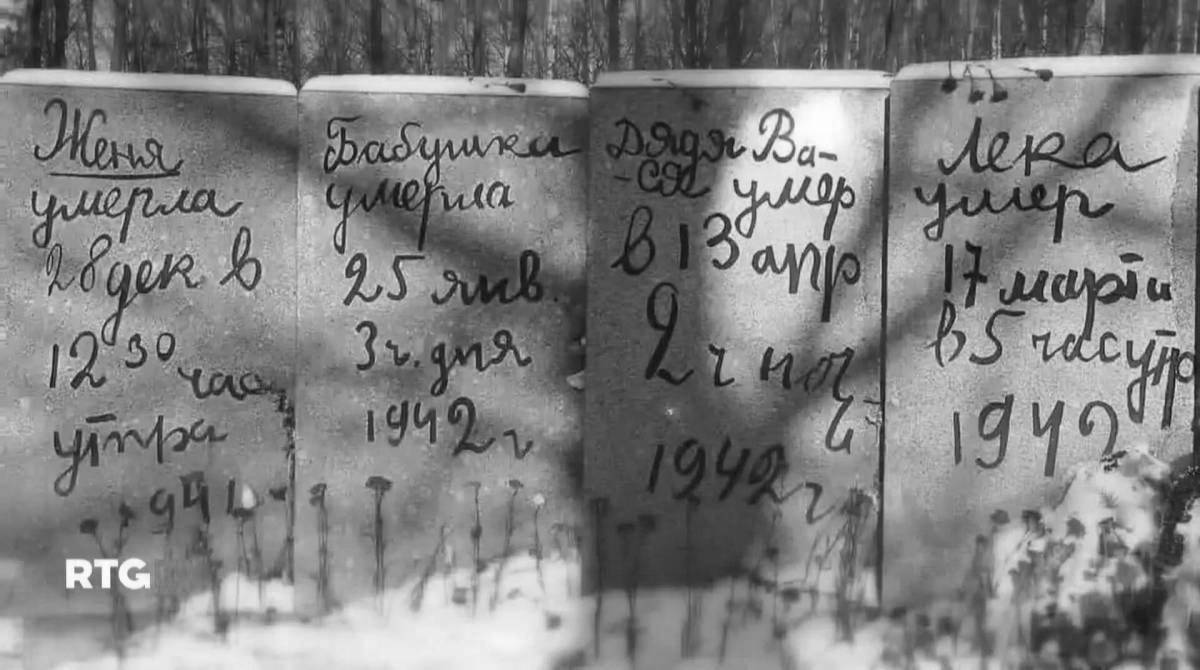 Женя
умерла
28 дек в
12 30 час
утра
1941
Бабушка
умерла
25 янв.
3 ч. дня
1942 г
Дядя Ва-
-ся умер
в 13 апр
2 ч ноч
и
1942 г
Лека
умер
17 марта
в 5 часутр
1942
RTG